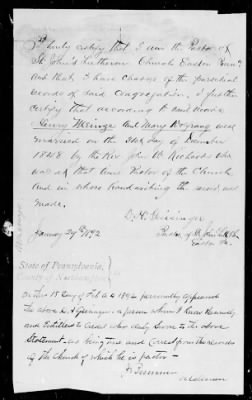 I hereby certify that I am the Pastor of
St. John's Lutheran Church Easton Penn'a
and that I have charge of the parochial
records of said Congregation. I further
certify that according to said records
Henry and Mary were
married on the day of December
1848 by the Rev. John W. Richards who
was at that time Pastor of the Church
and in whose handwriting the record was
made.
D. H. Geissinger
January 29th 1892
Pastor of St. John's Luth. Ch.
Easton Pa.
State of Pennsylvania,
County of Northampton
On this 1st day of Feb A.D. 1892 personally appeared
the above D. H. Geissinger a person whom I know
and Entitled to Credit who duly Swore to the above
Statement as being true and Correct from the records
of the Church of which he is pastor
Alderman